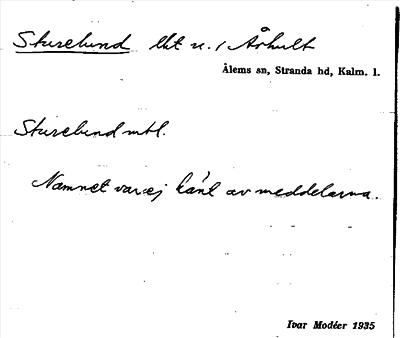 Sturelund lht u. / Århult
Ålems sn, Stranda hd, Kalm. l.
Sturelund mtl.
Namnet var ej känt av meddelarna.
Ivar Modéer 1935